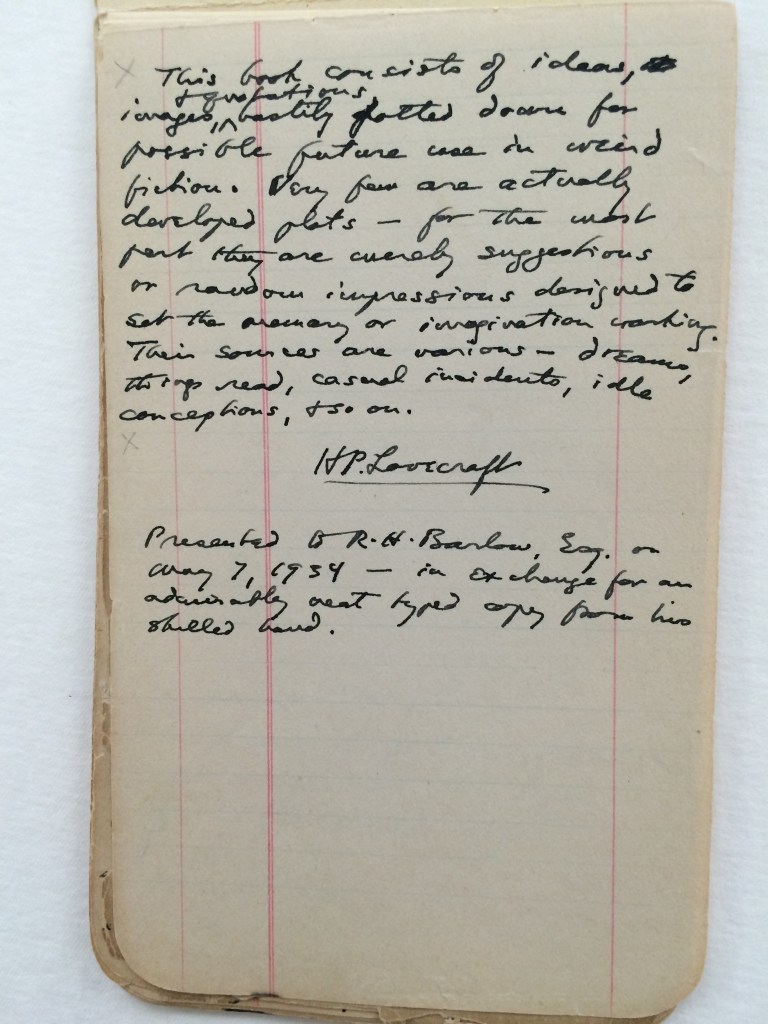 This book consists of ideas,
images, & quotations hastily jotted down for
possible future use in weird
fiction. Very few are actually
developed plots — for the most
part they are merely suggestions
or random impressions designed to
set the memory or imagination working.
Their sources are various — dreams,
things read, casual incidents, idle
conceptions, & so on.
H.P. Lovecraft
Presented to R.H. Barlow, Esq. on
May 7, 1934 — in exchange for an
admirably neat typed copy from his
skilled hand.